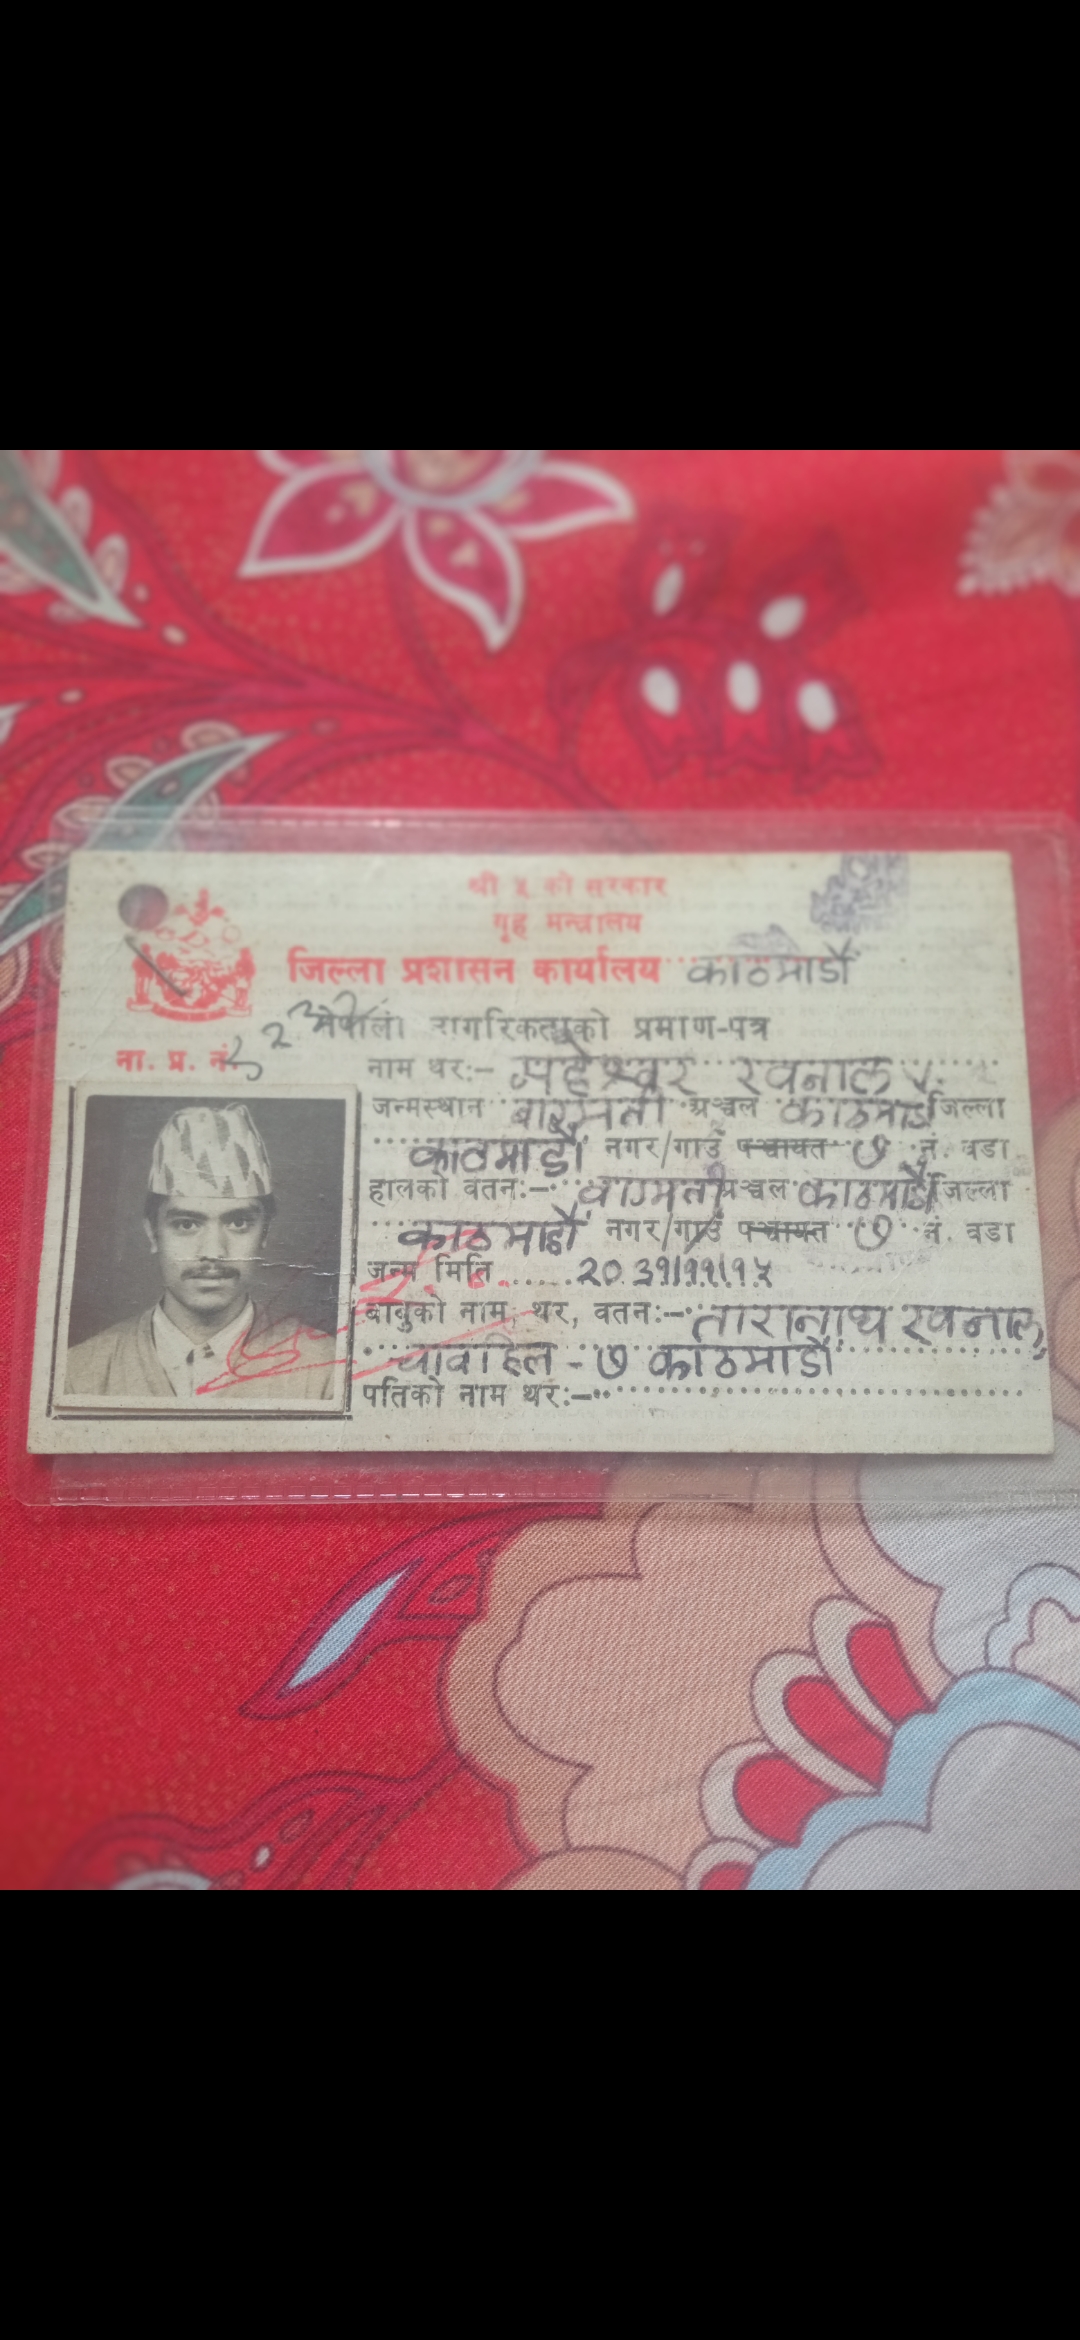 श्री ५ को सरकार
गृह मन्त्रालय
जिल्ला प्रशासन कार्यालय काठमाडौं
नेपाली नागरिकताको प्रमाण-पत्र
ना. प्र. नं.
नाम थर:- महेश्वर खनाल
जन्मस्थान बाग्मती अञ्चल काठमाडौं जिल्ला
काठमाडौं नगर/गाउँ पञ्चायत ७ नं. वडा
हालको वतन:- वाग्मती अञ्चल काठमाडौं जिल्ला
काठमाडौं नगर/गाउँ पञ्चायत ७ नं. वडा
जन्म मिति
बाबुको नाम, थर, वतन:- तारानाथ खनाल,
चावहिल - ७ काठमाडौं
पतिको नाम थर:-